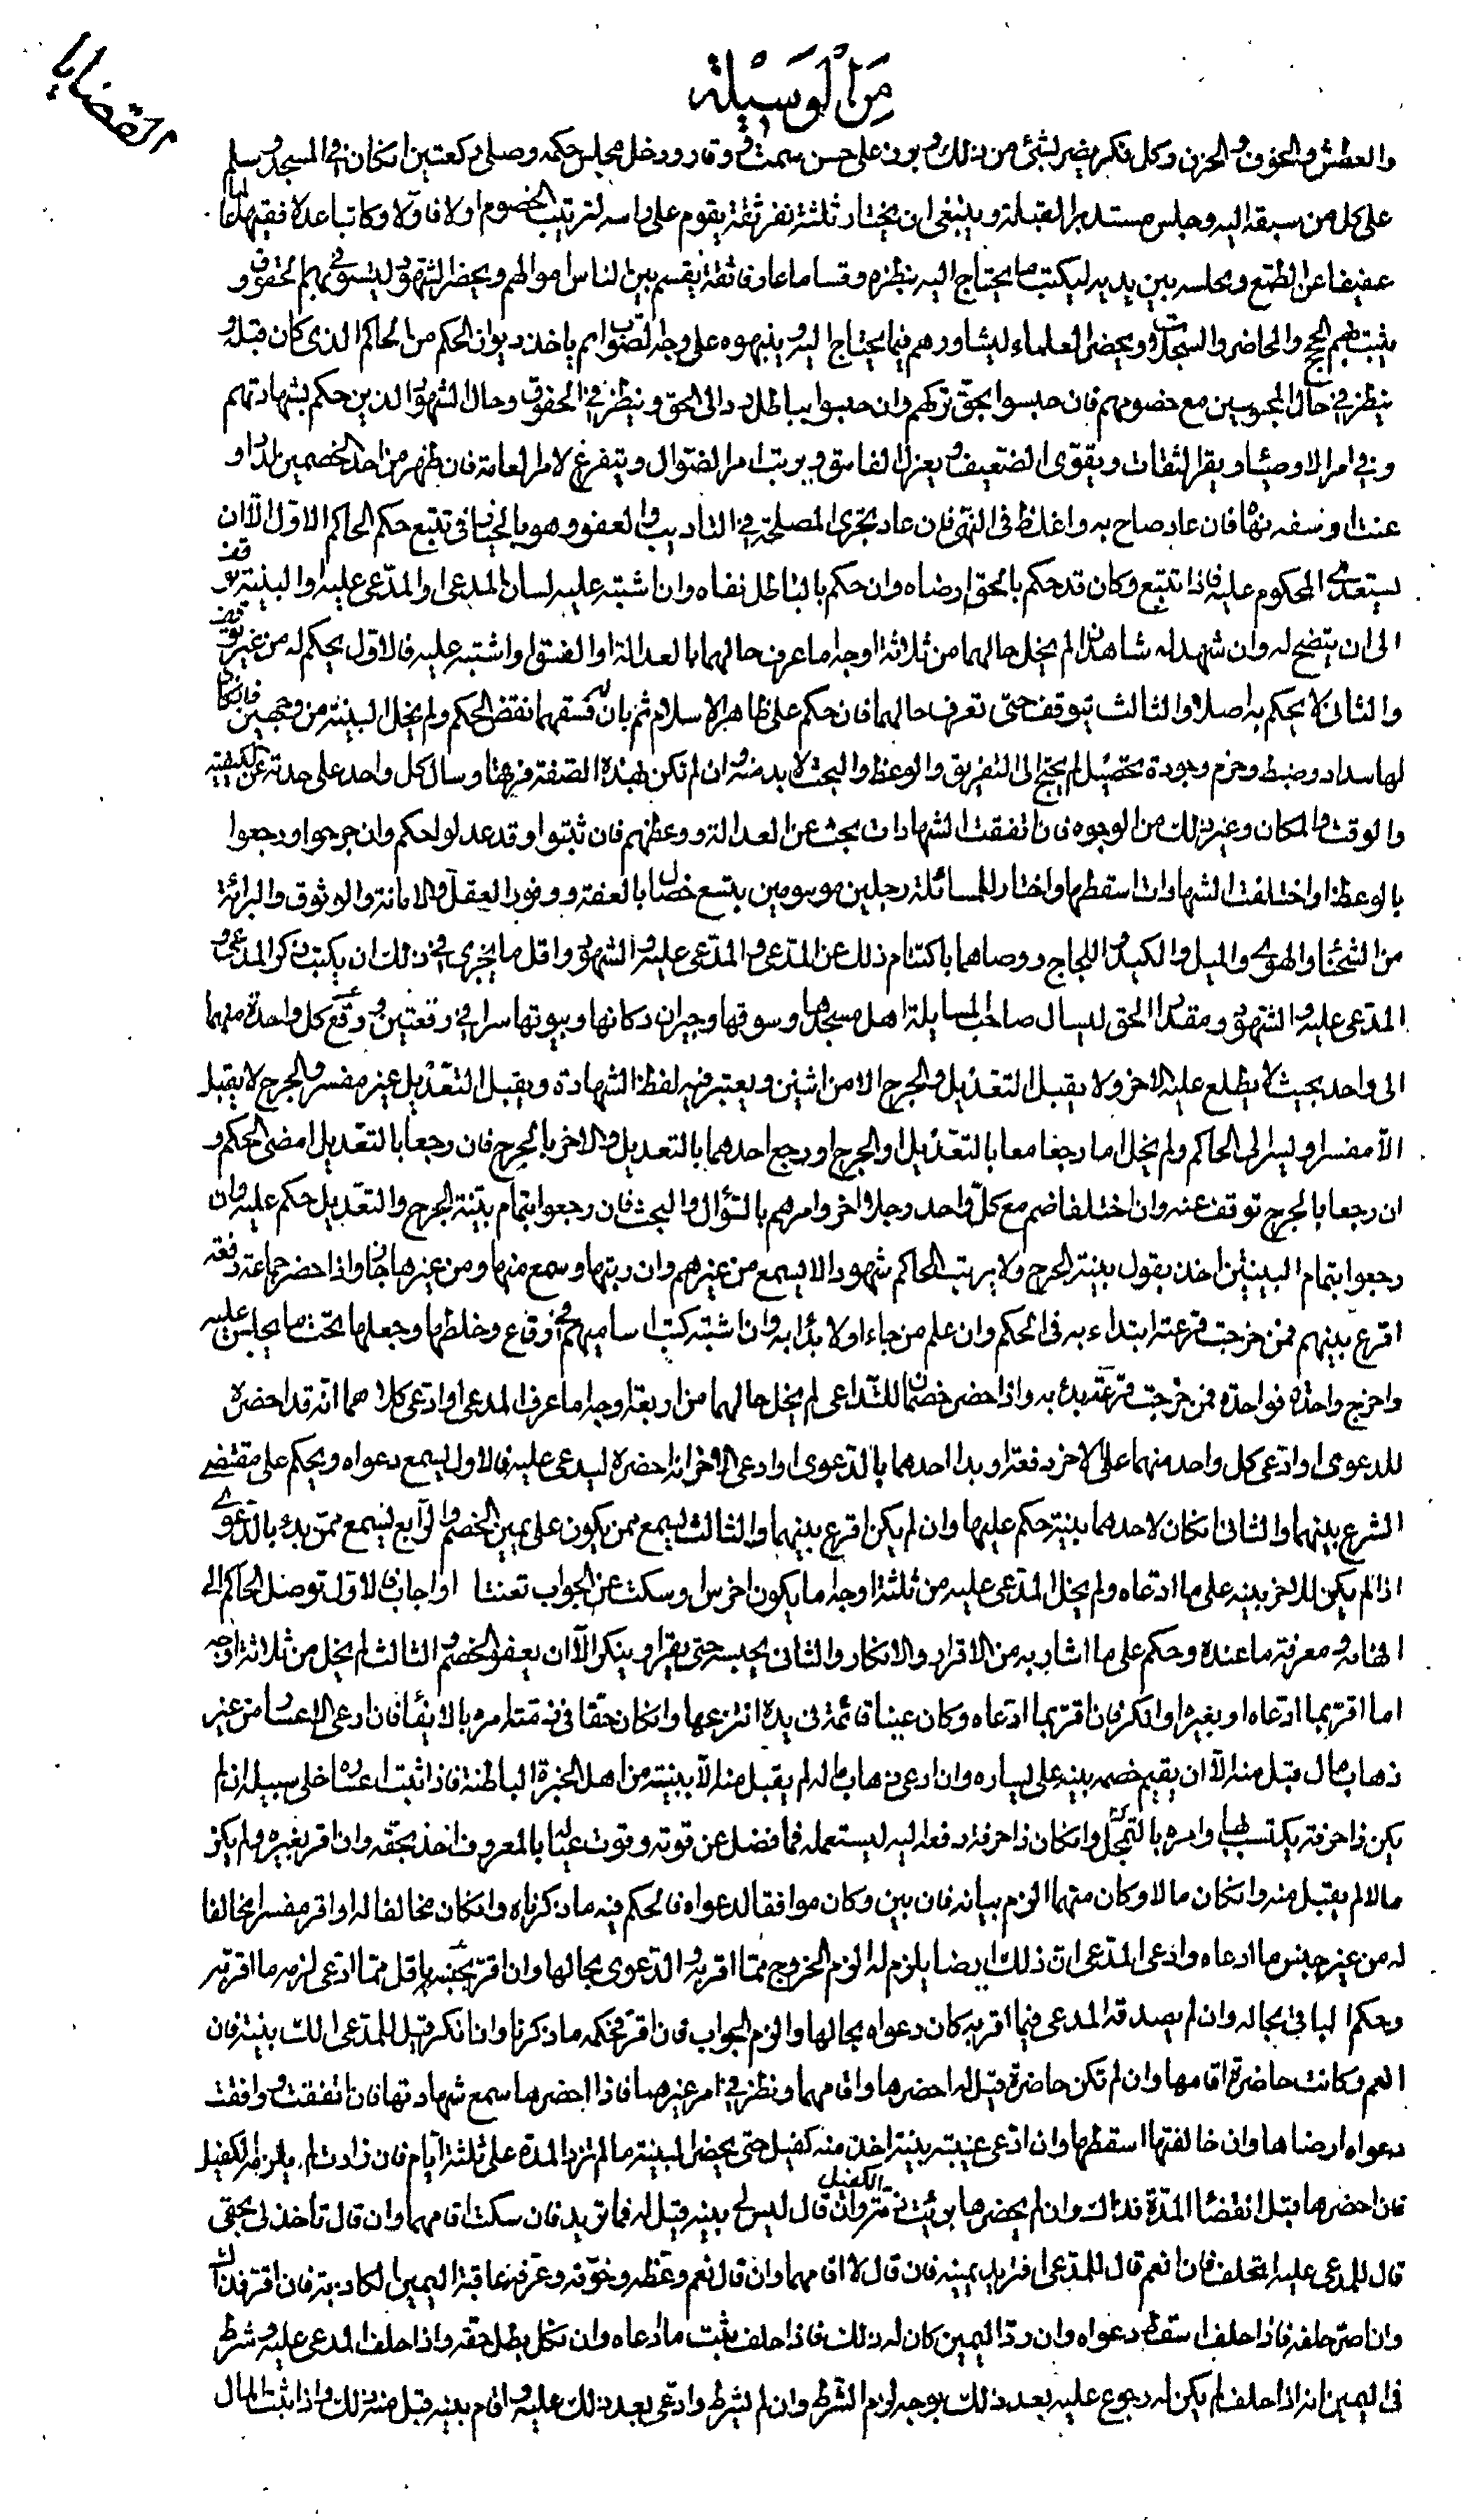 القضايا
مِنَ الْوَسِيْلة
والعطش والخوف والحزن وكل فكر يضر لشئ من ذلك ويكون على حسن سمت ووقار ودخل مجلس حكمه وصلى ركعتين ان كان في المسجد وسلم
على كل من سبقه اليه وجلس مستدبر القبلة وينبغي ان يختار ثلثة نفر ثقة يقوم على راسه لترتيب الخصوم اولا فاولا وكاتبا عدلا فقيها عالما
عفيفا عن الطمع ويجلسه بين يديه ليكتب ما يحتاج اليه بنظره وقساما عارفا ثقة يقسم بين الناس اموالهم ويحضر الشهود ليستوفى بهم الحقوق و
يثبت بهم الحجج والمحاضر والسجلات ويحضر العلماء ليشاورهم فيما يحتاج اليه وينبهوه على وجه الصواب ثم ياخذ ديوان الحكم من الحاكم الذى كان قبله و
ينظر في حال المحبوسين مع خصومهم فان حبسوا بحق تركهم وان حبسوا بباطل رد الى الحق وينظر في الحقوق وحال الشهود الذين حكم بشهادتهم
وفي امر الاوصياء ويقر الثقات ويقوى الضعيف ويعزل الفاسق ويرتب امر الضوال ويتفرغ لامر العامة فان ظهر من احد الخصمين لدد او
عنت او سفه نهاه فان عاد صاح به واغلظ في النهى فان عاد تحرى المصلحة في التاديب والعفو وهو بالخيار في تتبع حكم الحاكم الاول الا ان
يستعدى المحكوم عليه فاذا تتبع وكان قد حكم بالحق امضاه وان حكم بالباطل نفاه وان اشتبه عليه لسان المدعى او المدعى عليه او البينة توقف
الى ان يتضح له وان شهد له شاهدان لم يخل حالهما من ثلاثة اوجه اما عرف حالهما بالعدالة او الفسق او اشتبه عليه فالاول يحكم له من غير توقف
والثانى لا يحكم به اصلا والثالث يتوقف حتى تعرف حالهما فان حكم على ظاهر الاسلام ثم بان له فسقهما نقض الحكم ولم يخل البينة من وجهين فان كان
لها سداد وضبط وحزم وجودة تحصيل لم يحتج الى التفريق والوعظ والبحث لا بد منه وان لم تكن بهذه الصفة فرقها وسال كل واحد على حدته عن الكيفية
والوقت والمكان وغير ذلك من الوجوه فان اتفقت الشهادات بحث عن العدالة ووعظهم فان ثبتوا وقد عدلوا حكم وان جرحوا ورجعوا
بالوعظ او اختلفت الشهادات اسقطها واختار للمسائلة رجلين موسومين بتسع خصال بالعفة ووفور العقل والامانة والوثوق والبرائة
من الشحناء والهوى والميل والكيد واللجاج ووصاهما باكتتام ذلك عن المدعى والمدعى عليه والشهود واقل ما يجرى في ذلك ان يكتب ذكر المدعى و
المدعى عليه والشهود ومقدار الحق ليسال صاحب المسايلة اهل مسجدها وسوقها وجيران دكانها وبيوتها سرا في رقعتين ودفع كل واحدة منهما
الى واحد بحيث لا يطلع عليه الاخر ولا يقبل التعديل والجرح الا من اثنين ويعتبر فيه لفظ الشهادة ويقبل التعديل غير مفسر والجرح لا يقبل
الا مفسرا ويسر الى الحاكم ولم يخل اما رجعا معا بالتعديل او الجرح او رجع احدهما بالتعديل والاخر بالجرح فان رجعا بالتعديل امضى الحكم و
ان رجعا بالجرح توقف عنه وان اختلفا ضم مع كل واحد رجلا اخر وامرهم بالسؤال والبحث فان رجعوا بتمام بينة الجرح والتعديل حكم عليه وان
رجعوا بتمام البينتين اخذ بقول بينة الجرح ولا يرتب الحاكم شهودا لا يسمع من غيرهم وان رتبها وسمع منها ومن غيرها جاز واذا حضر جماعة دفعة
اقرع بينهم فمن خرجت قرعته ابتداء به في الحكم وان علم من جاء اولا بدأ به وان اشتبه كتب اساميهم في رقاع وخلطها وجعلها تحت ما يجلس عليه
واخرج واحدة فواحدة فمن خرجت قرعته بدئ به واذا حضر خصمان للتداعى لم يخل حالهما من اربعة اوجه اما عرف المدعى او ادعى كلاهما انه قد احضره
للدعوى او ادعى كل واحد منهما على الاخر دفعة او بدا احدهما بالدعوى او ادعى الاخر انه احضره ليدعى عليه فالاول يسمع دعواه ويحكم على مقتضى
الشرع بينهما والثانى ان كان لاحدهما بينة حكم عليها وان لم يكن اقرع بينهما والثالث يسمع ممن يكون على يمين الخصم والرابع يسمع ممن بدئ بالدعوى
اذا لم يكن للاخر بينه على ما ادعاه ولم يخل المدعى عليه من ثلثة اوجه اما يكون اخرس او سكت عن الجواب تعنتا او اجاب فالاول توصل الحاكم الى
افهامه ومعرفة ما عنده وحكم على ما اشار به من الاقرار والانكار والثانى يحبسه حتى يقر او ينكر الا ان يعفو الخصم والثالث لم يخل من ثلاثة اوجه
اما اقر بما ادعاه او بغيره او انكر فان اقر بما ادعاه وكان عينا قائمة في يده انتزعها وان كان حقا في ذمته امره بالايفاء فان ادعى الاعسار من غير
ذهاب مال قبل منه الا ان يقيم خصمه بينه على يساره وان ادعى ذهاب ماله لم يقبل منه الا ببينة من اهل الخبرة الباطنة فاذا ثبت اعساره خلى سبيله ان لم
يكن ذا حرفة يكتسب بها وامره بالتمحل وان كان ذا حرفة دفعه اليه ليستعمله فما فضل عن قوته وقوت عياله بالمعروف اخذ بحقه وان اقر بغيره ولم يكن
مالا لم يقبل منه وان كان مالا وكان متهما الزم بيانه فان بين وكان موافقا لدعواه فالحكم فيه ما ذكرناه وان كان مخالفا له او اقر مفسرا مخالفا
له من غير جنس ما ادعاه وادعى المدعى ان ذلك ايضا يلزم له الزم الخروج مما اقر به والدعوى بحالها وان اقر بجنسه باقل مما ادعى لزمه ما اقر به
وحكم الباقى بحاله وان لم يصدقه المدعى فيما اقر به كان دعواه بحالها والزم الجواب فان اقر فحكمه ما ذكرنا وان انكر قيل للمدعى الك بينة فان
انعم وكانت حاضرة اقامها وان لم تكن حاضرة قيل له احضرها واقامهما ونظر في امر غيرهما فاذا احضرها سمع شهادتها فان اتفقت ووافقت
دعواه امضاها وان خالفتها اسقطها وان ادعى غيبته بينة اخذ منه كفيل حتى يحضر البينة ما لم تزد المدة على ثلثة ايام فان زادت لم يلزمه الكفيل
فان احضرها قبل انقضاء المدة فذاك وان لم يحضرها برئت ذمة الكفيل وان قال ليس لى بينه قيل له فما تريد فان سكت اقامهما وان قال تأخذ لى بحقى
قال للمدعى عليه اتحلف فان انعم قال للمدعى افتريد يمينه فان قال لا اقامهما وان قال نعم وعظه وخوفه وعرفه عاقبة اليمين الكاذبة فان اقر فذاك
وان اصر حلفه فاذا حلف سقط دعواه وان رد اليمين كان له ذلك فاذا حلف يثبت ما ادعاه وان نكل بطل حقه واذا حلف المدعى عليه وشرط
في اليمين انه اذا حلف لم يكن له رجوع عليه بعد ذلك بوجه لزم الشرط وان لم يشرط وادعى بعد ذلك عليه واقام بينه قبل منه ذلك واذا ثبت المال